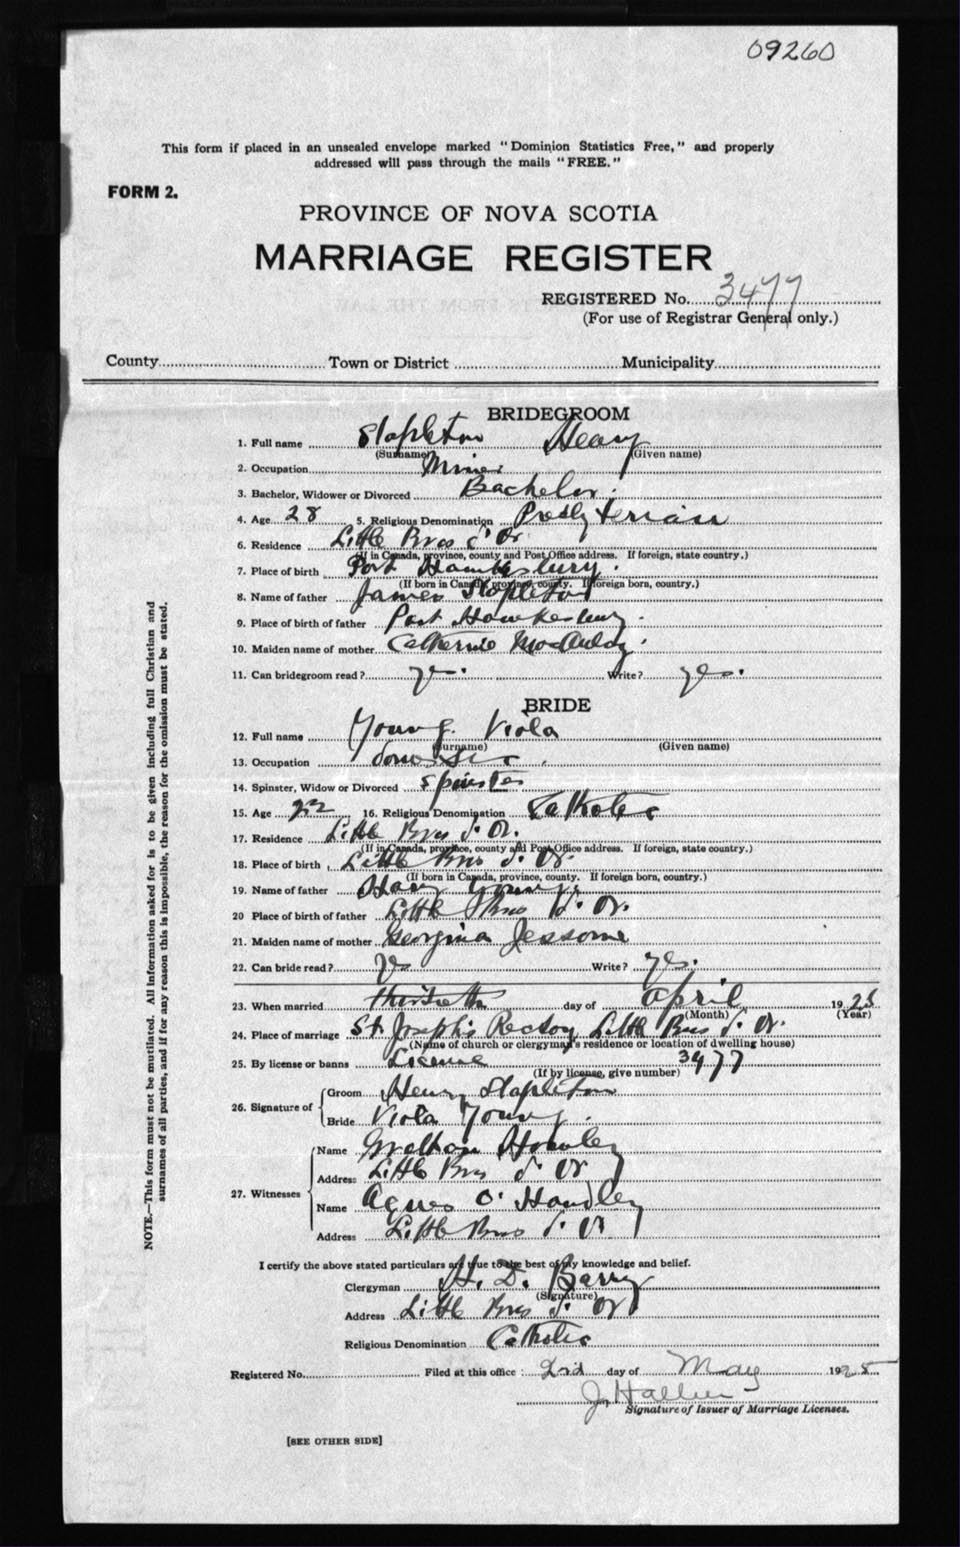 09260
This form if placed in an unsealed envelope marked "Dominion Statistics Free," and properly
addressed will pass through the mails "FREE."
FORM 2.
PROVINCE OF NOVA SCOTIA
MARRIAGE REGISTER
REGISTERED No. 3477
(For use of Registrar General only.)
County Town or District Municipality
BRIDEGROOM
1. Full name Stapleton Henry
(Surname) (Given name)
2. Occupation Miner
3. Bachelor, Widower or Divorced Bachelor.
4. Age 28 5. Religious Denomination Presbyterian
6. Residence Little Bras d'Or
(If in Canada, province, county and Post Office address. If foreign, state country.)
7. Place of birth Port Hawkesbury.
(If born in Canada, province, county. If foreign born, country.)
8. Name of father James Stapleton
9. Place of birth of father Port Hawkesbury.
10. Maiden name of mother Catherine
11. Can bridegroom read? yes. Write? yes.
BRIDE
12. Full name Young. Viola
(Surname) (Given name)
13. Occupation
14. Spinster, Widow or Divorced Spinster
15. Age 22 16. Religious Denomination Catholic
17. Residence Little Bras d'Or.
(If in Canada, province, county and Post Office address. If foreign, state country.)
18. Place of birth Little Bras d'Or.
(If born in Canada, province, county. If foreign born, country.)
19. Name of father Young
20 Place of birth of father Little Bras d'Or.
21. Maiden name of mother Georgina Jessome
22. Can bride read? yes Write? yes.
23. When married thirtieth day of April 1925
(Month) (Year)
24. Place of marriage St. Joseph's Rectory Little Bras d'Or.
(Name of church or clergyman's residence or location of dwelling house)
25. By license or banns License 3477
(If by license, give number)
26. Signature of Groom Henry Stapleton
Bride Viola Young.
27. Witnesses Name
Address Little Bras d'Or
Name Agnes O'Handley
Address Little Bras d'Or
I certify the above stated particulars are true to the best of my knowledge and belief.
Clergyman H. D. Barry
(Signature)
Address Little Bras d'Or
Religious Denomination Catholic
Registered No. Filed at this office: day of May 1925
Signature of Issuer of Marriage Licenses.
[SEE OTHER SIDE]
NOTE.—This form must not be mutilated. All information asked for is to be given including full Christian and
surnames of all parties, and if for any reason this is impossible, the reason for the omission must be stated.